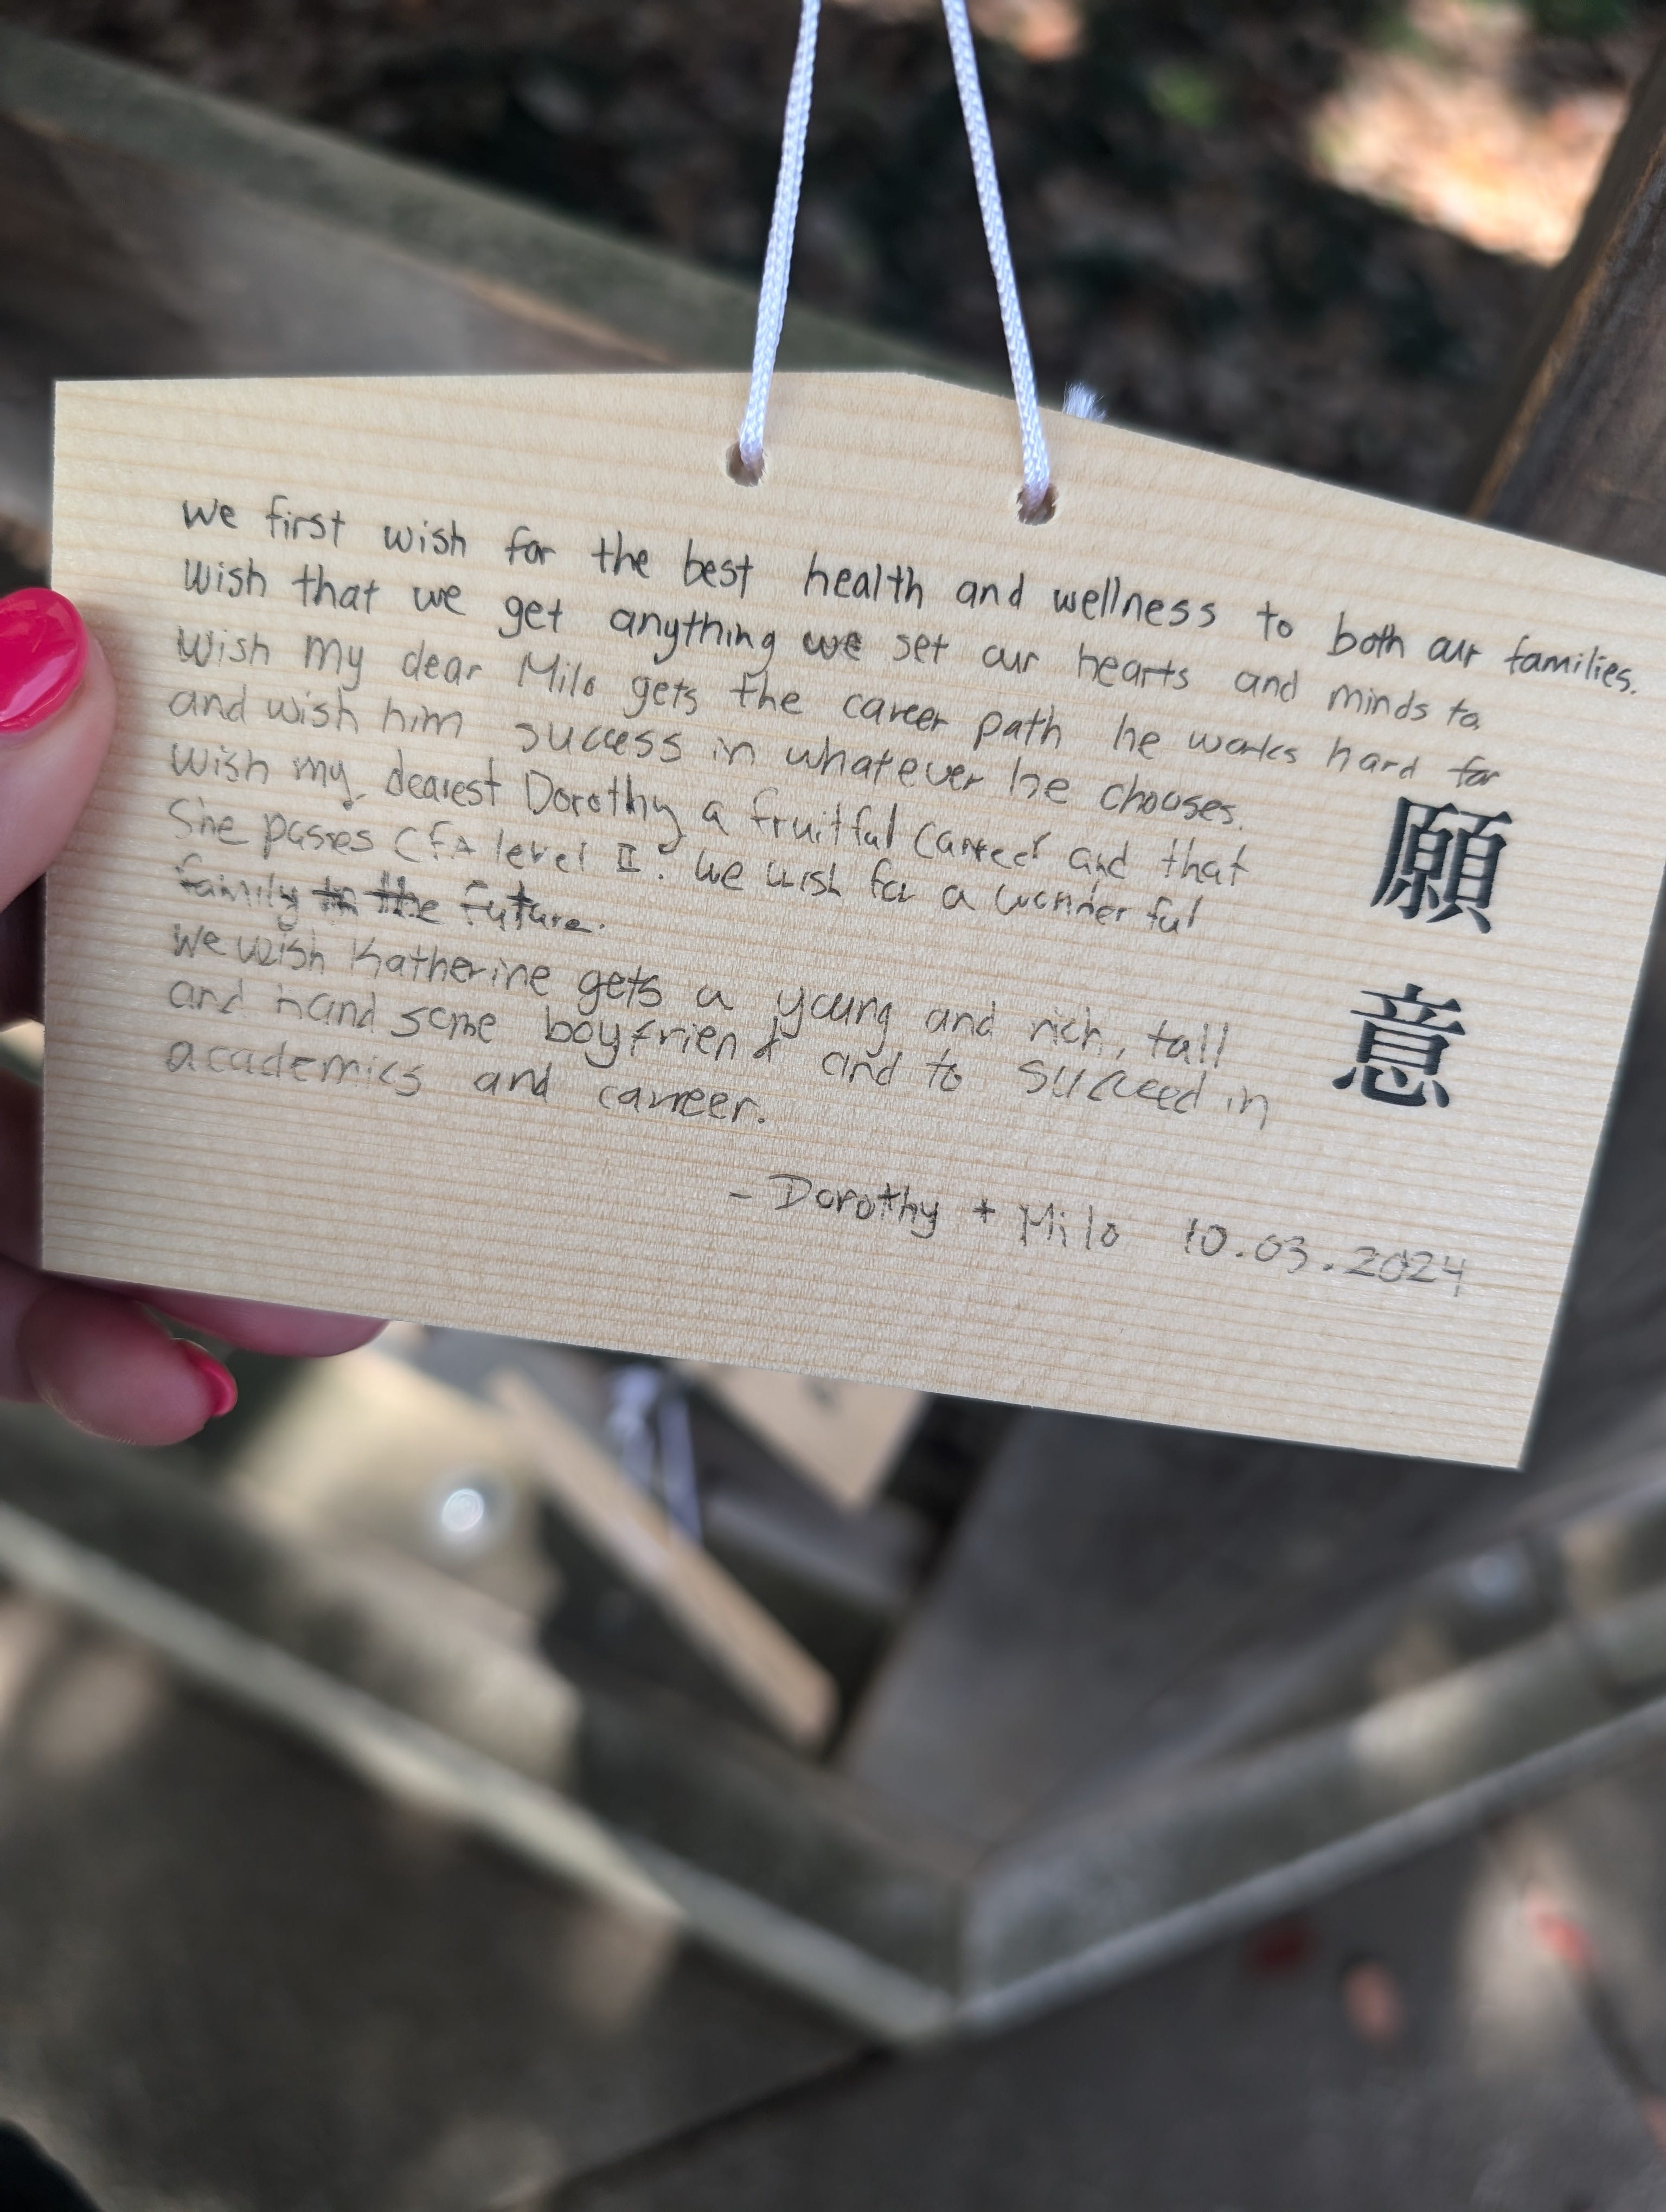 we first wish for the best health and wellness to both our families.
wish that we get anything we set our hearts and minds to
wish my dear Milo gets the career path he works hard for
and wish him success in whatever he chooses.
wish my dearest Dorothy a fruitful career and that
She passes CFA level II. we wish for a wonderful
family in the future.
we wish Katherine gets a young and rich, tall
and handsome boyfriend and to succeed in
academics and carreer.
- Dorothy + Milo 10.03.2024
願
意